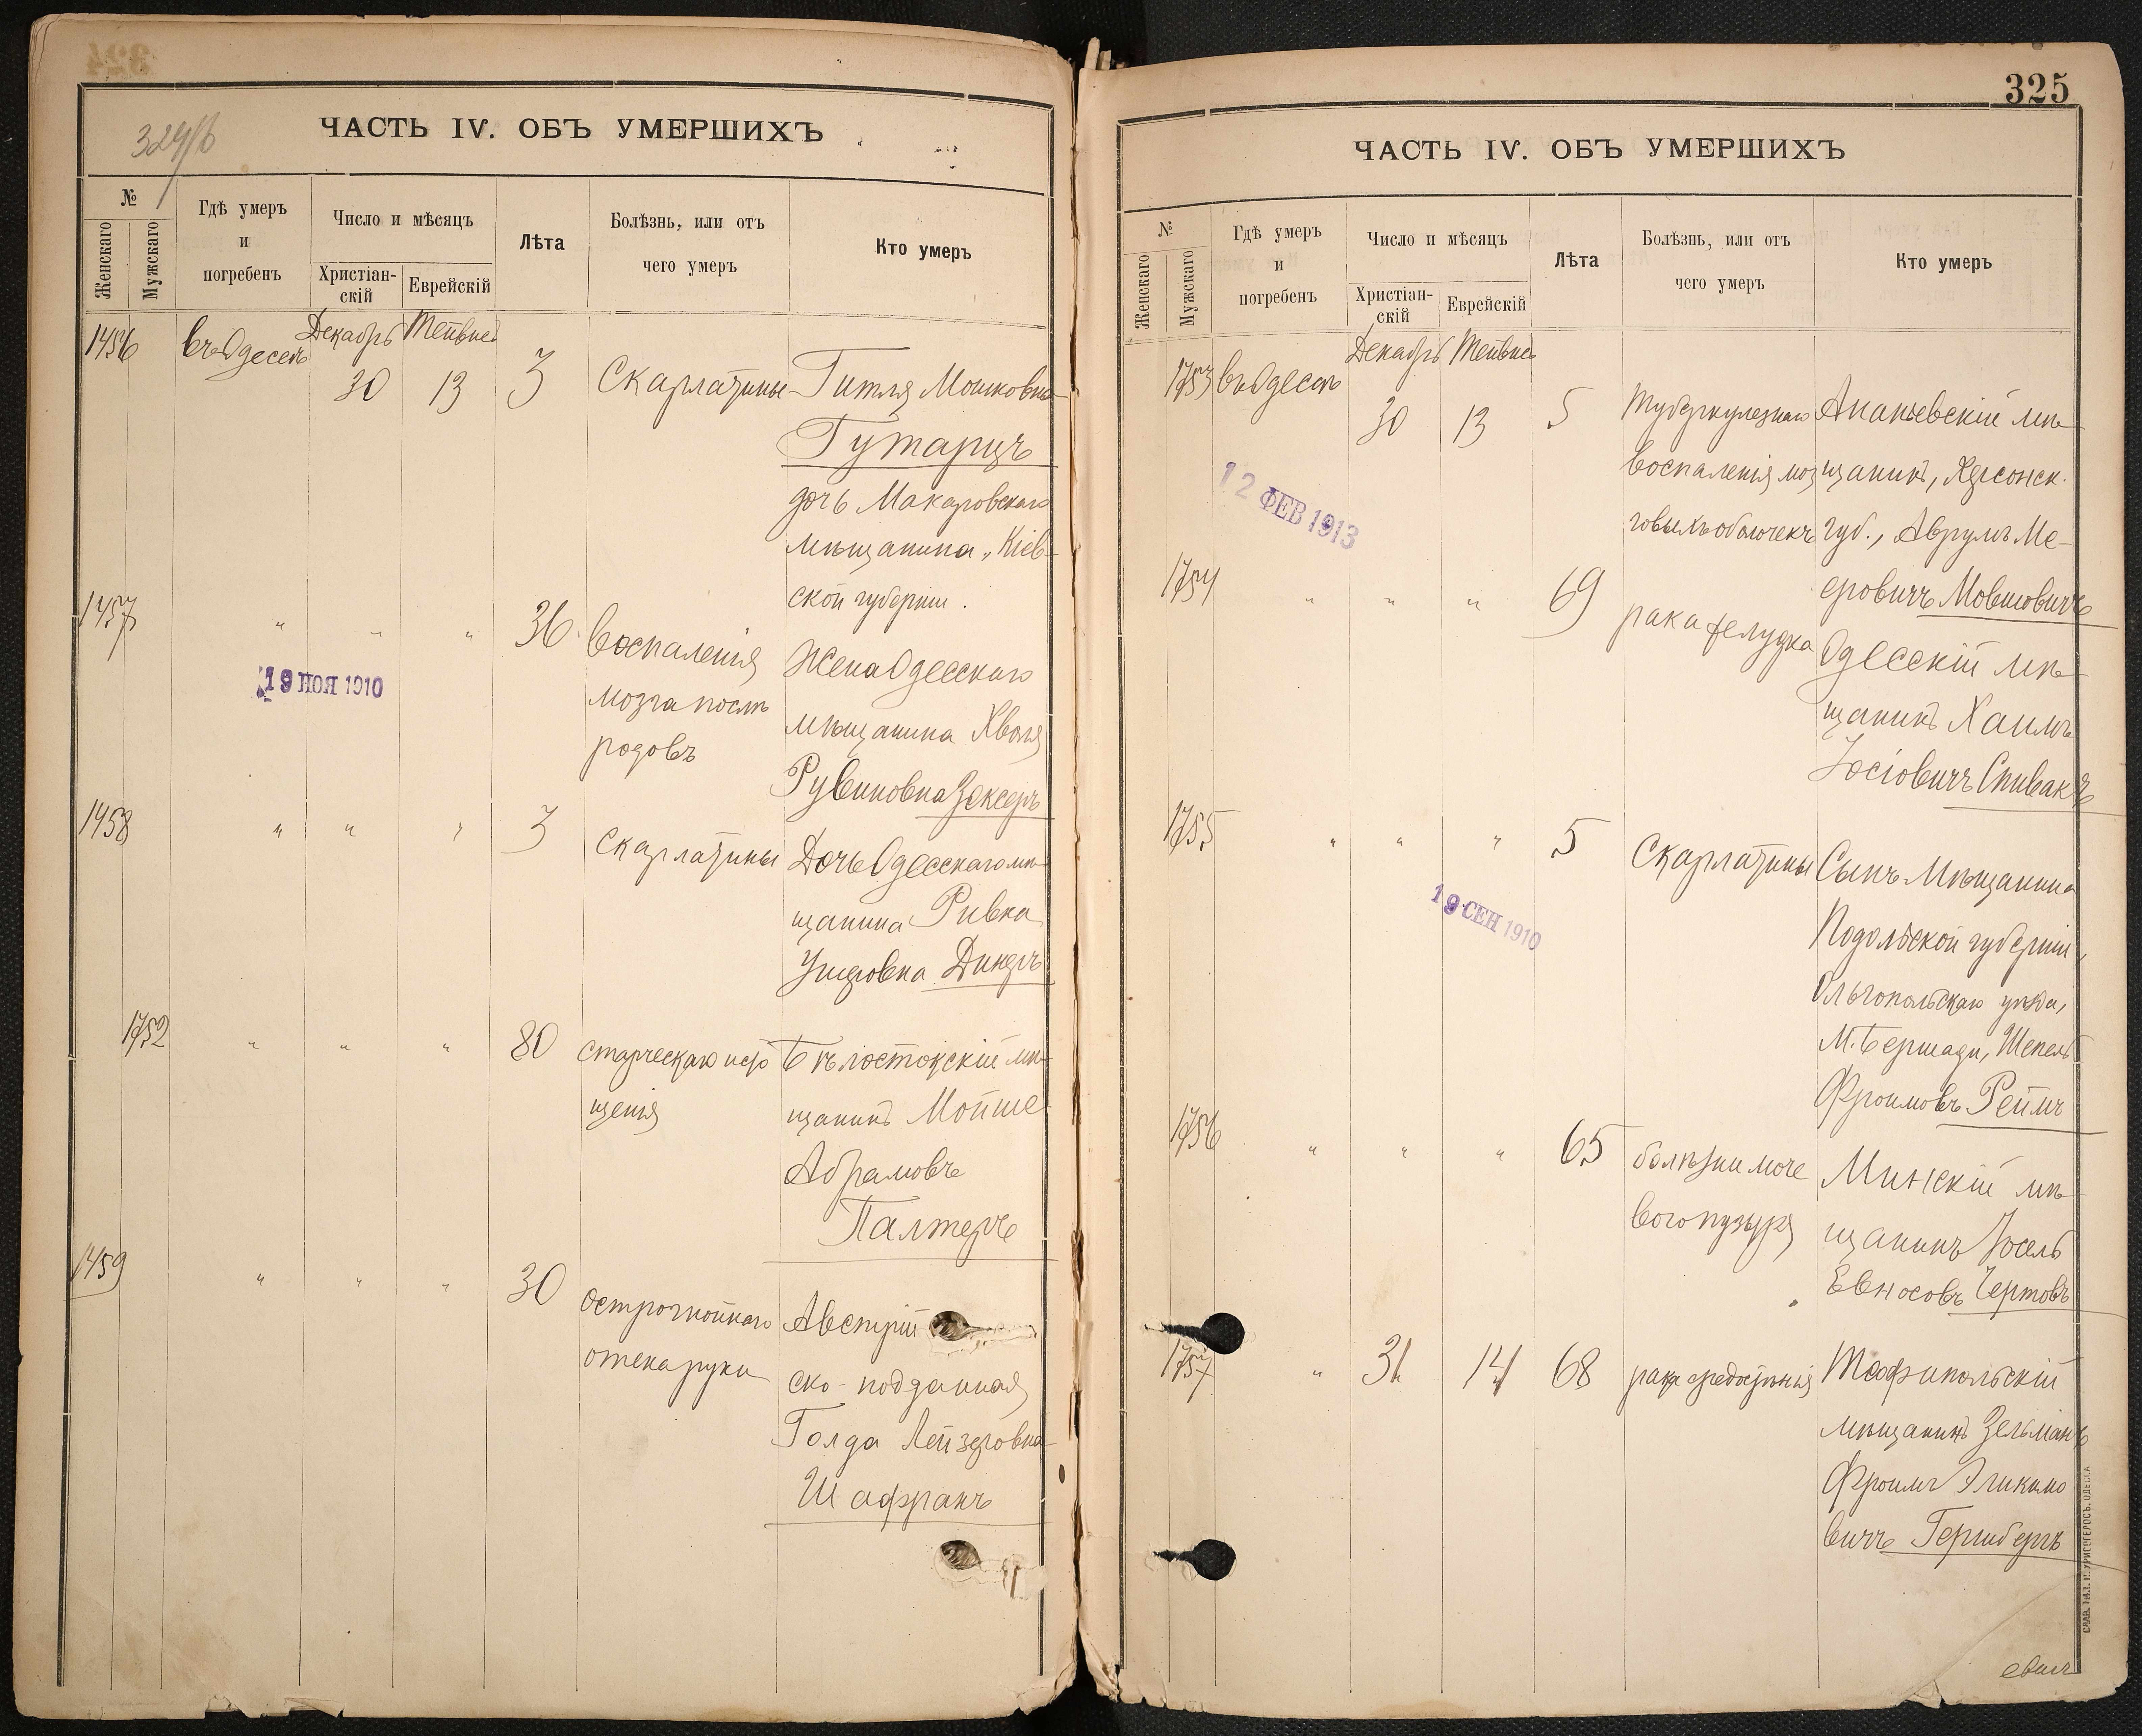 324/б
ЧАСТЬ IV. ОБЪ УМЕРШИХЪ
№
Женскаго
Мужскаго
Гдѣ умеръ
и
погребенъ
Число и мѣсяцъ
Христіан-
скій
Еврейскій
Лѣта
Болѣзнь, или отъ
чего умеръ
Кто умеръ
1456
въ Одессѣ
Декабрь
30
Тейвисъ
13
3
Скарлатины
Гитля Мошковна
Гутарцъ
дочь Макаровскаго
мѣщанина, Кіев-
ской губерніи.
1457
" " "
36
Воспаленія
мозга послѣ
родовъ
Жена Одесскаго
мѣщанина
Рувиновна Зексеръ
19 НОЯ 1910
1458
" " "
3
Скарлатины
Дочь Одесскаго мѣ-
щанина Ривка
Ушеровна
1752
" " "
80
старческаго исто
щенія
Бѣлостокскій мѣ-
щанинъ Мойше
Абрамовъ
Палтеръ
1459
" " "
30
острогнойнаго
отека руки
Австрій
ско-подданная
Голда Лейзеровна
Шафранъ
325
ЧАСТЬ IV. ОБЪ УМЕРШИХЪ
№
Женскаго
Мужскаго
Гдѣ умеръ
и
погребенъ
Число и мѣсяцъ
Христіан-
скій
Еврейскій
Лѣта
Болѣзнь, или отъ
чего умеръ
Кто умеръ
1753
въ Одессѣ
Декабрь
30
Тейвисъ
13
5
Туберкулезнаго
воспаленія моз
говыхъ оболочекъ
Ананьевскій мѣ-
щанинъ, Херсонск.
губ., Аврумъ Ме-
еровичъ Мовшовичъ
12 ФЕВ 1913
1754
" " "
69
рака желудка
Одесскій мѣ-
щанинъ Хаимъ
Іосіовичъ Спивакъ
1755
" " "
5
Скарлатины
Сынъ Мѣщанина
Подольской губерніи,
Ольгопольскаго уѣзда,
М. Бершади, Шепель
Фроимовъ Реймъ
19 СЕН 1910
1756
" " "
65
болѣзни моче
вого пузыря
Минскій мѣ-
щанинъ Іосель
Евносовъ Чертовъ
1757
" 31 14
68
рака средостѣнія
Теофипольскій
мѣщанинъ Зельманъ
Фроимъ Эликимо
вичъ Гершбергъ